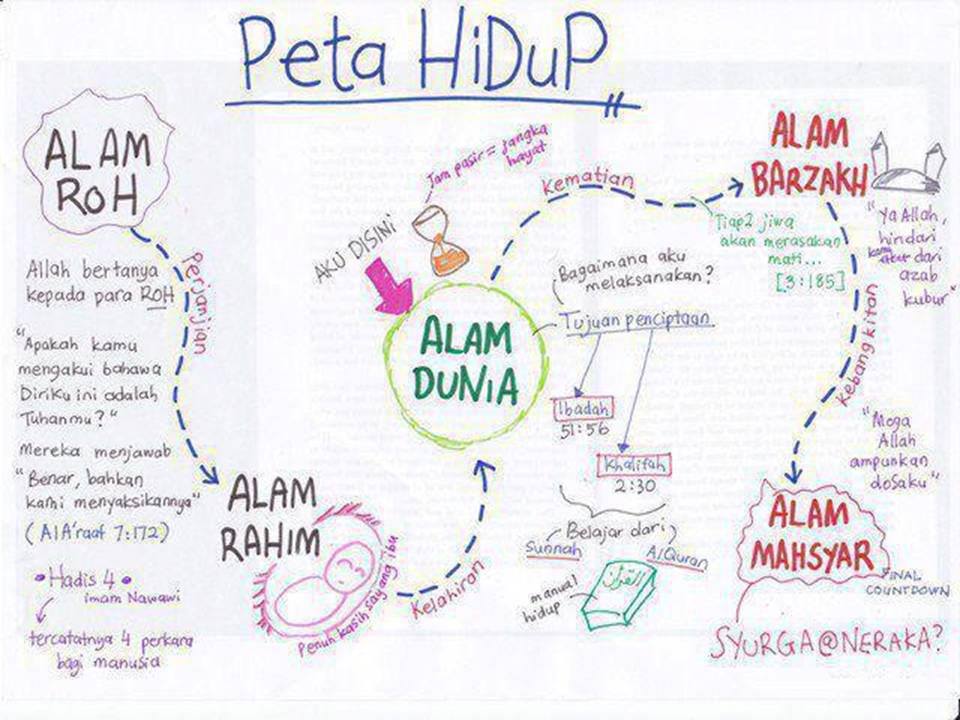 Peta HiDuP
ALAM
ROH
Allah bertanya
kepada para ROH
"Apakah kamu
mengakui bahawa
Diriku ini adalah
Tuhanmu?"
Mereka menjawab
"Benar, bahkan
kami menyaksikannya"
(AlA'raaf 7:172)
• Hadis 4 •
imam Nawawi
tercatatnya 4 perkara
bagi manusia
Perjanjian
ALAM
RAHIM
Penuh kasih sayang ibu
Kelahiran
AKU DISINI
Jam pasir = jangka
hayat
ALAM
DUNiA
Bagaimana aku
melaksanakan?
Tujuan penciptaan
Ibadah
51:56
Khalifah
2:30
Belajar dari
Sunnah
AlQuran
manual
hidup
القرآن
Kematian
Tiap2 jiwa
akan merasakan
mati...
[3:185]
ALAM
BARZAKH
"Ya Allah,
hindari
dari
azab
kubur"
Kebangkitan
"Moga
Allah
ampunkan
dosaku"
ALAM
MAHSYAR
FINAL
COUNTDOWN
SYURGA@NERAKA?